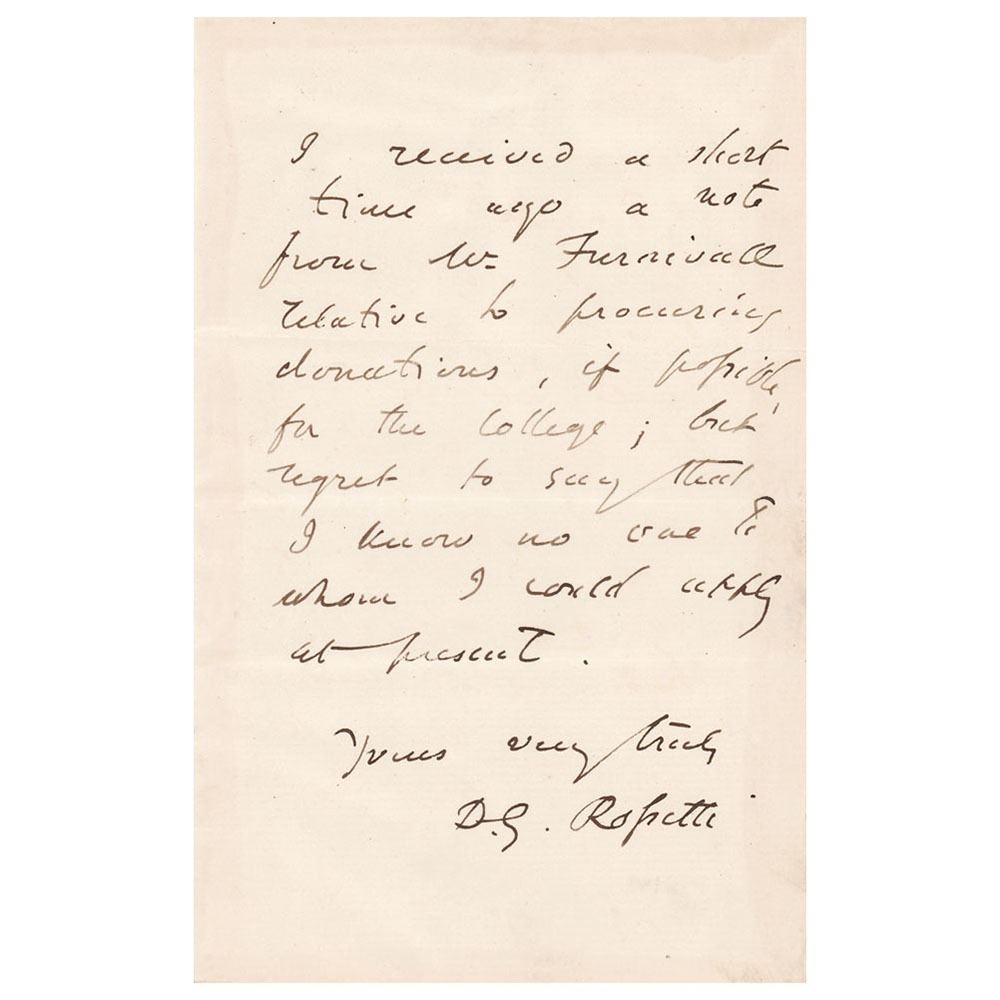 I received a short
time ago a note
from Mr Furnivall
relative to procuring
donations, if possible,
for the College; but
regret to say that
I know no one to
whom I could apply
at present.
Yours very truly
D.G. Rossetti